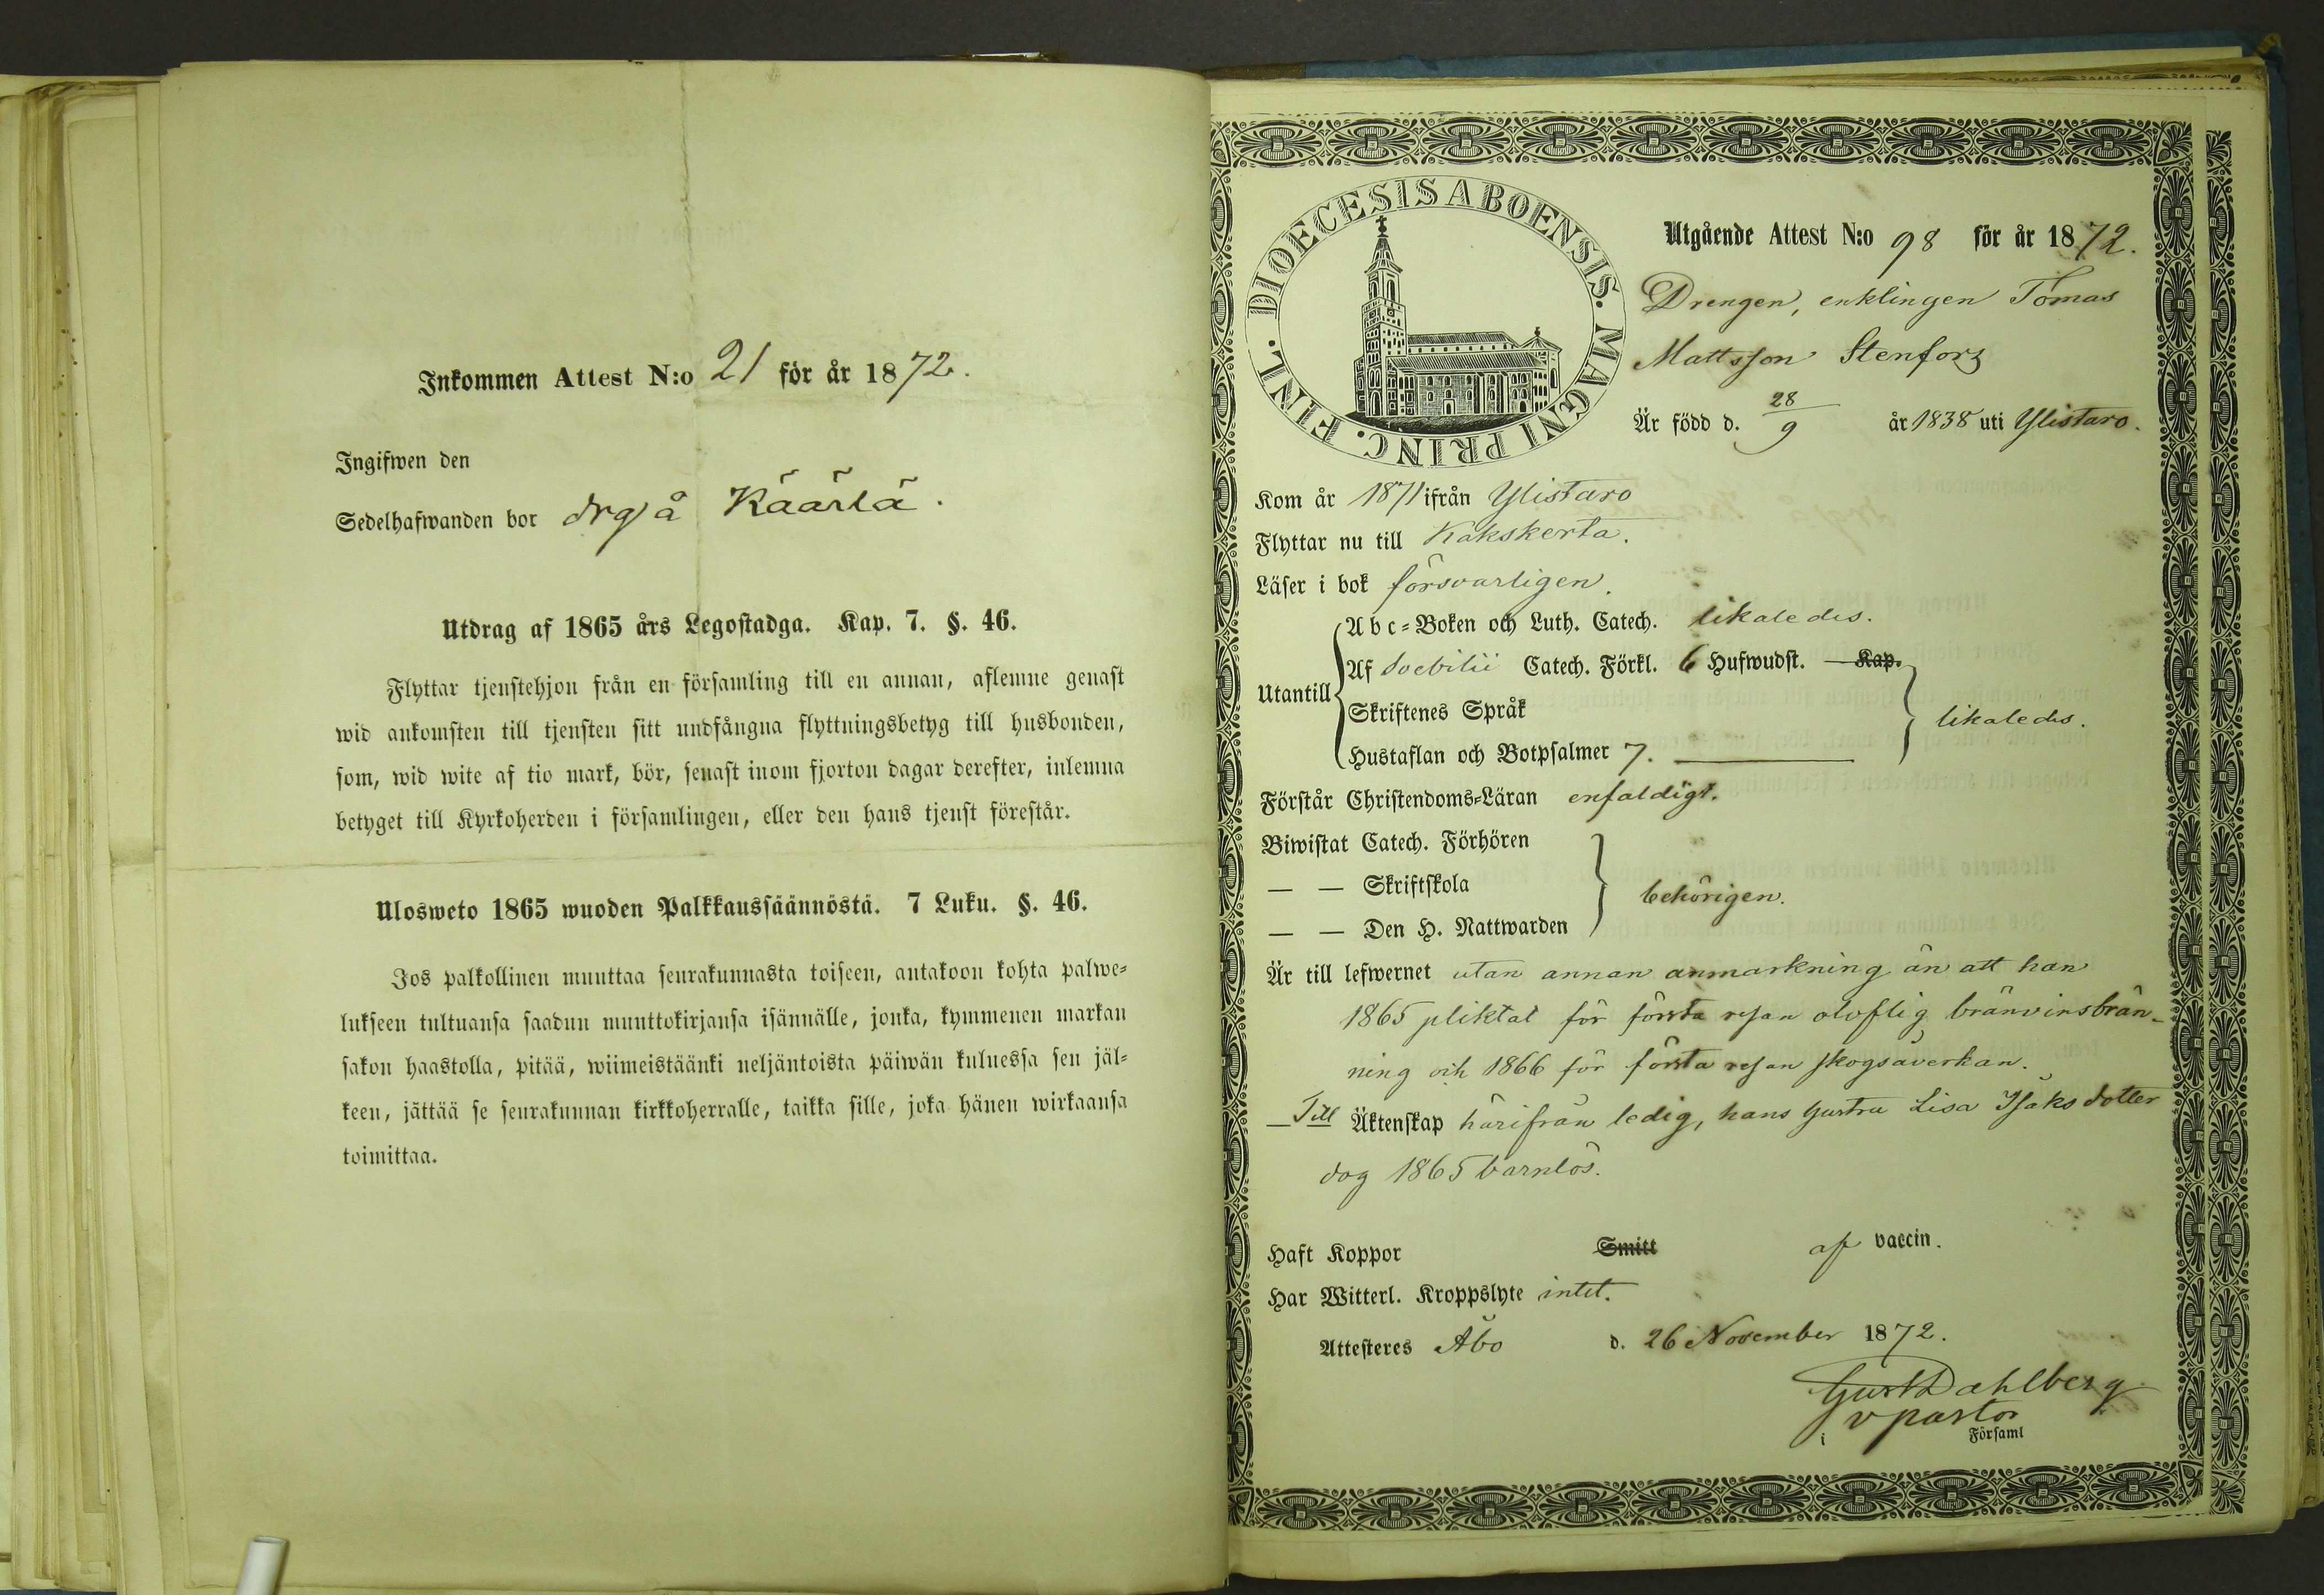 Inkommen Attest N:o 21 för år 1872.
Ingifwen den
Sedelhafwanden bor drg på Käärlä.
Utdrag af 1865 års Legostadga. Kap. 7. §. 46.
Flyttar tjenstehjon från en församling till en annan, aflemne genast
wid ankomsten till tjensten sitt undfångna flyttningsbetyg till husbonden,
som, wid wite af tio mark, bör, senast inom fjorton dagar derefter, inlemna
betyget till Kyrkoherden i församlingen, eller den hans tjenst förestår.
Ulosweto 1865 wuoden Palkkaussäännöstä. 7 Luku. §. 46.
Jos palkollinen muuttaa seurakunnasta toiseen, antakoon kohta palwe-
lukseen tultuansa saadun muuttokirjansa isännälle, jonka, kymmenen markan
sakon haastolla, pitää, wiimeistäänki neljäntoista päiwän kuluessa sen jäl-
keen, jättää se seurakunnan kirkkoherralle, taikka sille, joka hänen wirkaansa
toimittaa.
DIOECESIS ABOENSIS. MAGNI PRINC. FINL.
Utgående Attest N:o 98 för år 1872.
Drengen, enklingen Tomas
Mattsson Stenfors
Är född d. 28/9 år 1838 uti Ylistaro.
Kom år 1871 ifrån Ylistaro
Flyttar nu till Kakskerta.
Läser i bok försvarligen.
Utantill
Abc-Boken och Luth. Catech. likaledes.
Af Svebilii Catech. Förkl. 6 Hufwudst. Kap.
Skriftenes Språk
likaledes.
Hustaflan och Botpsalmer 7.
Förstår Christendoms-Läran enfaldigt.
Biwistat Catech. Förhören
— — Skriftskola
behörigen.
— — Den H. Nattwarden
Är till lefwernet utan annan anmärkning än att han
1865 pliktat för första resan olaflig bränvinsbrän-
ning och 1866 för första resan skogsåverkan.
Till Äktenskap härifrån ledig, hans hustru Lisa Isaksdotter
dog 1865 barnlös.
Haft Koppor Smitt af vaccin.
Har Witterl. Kroppslyte intet.
Attesteres Åbo d. 26 November 1872.
Gust Dahlberg
v pastor
i Församl